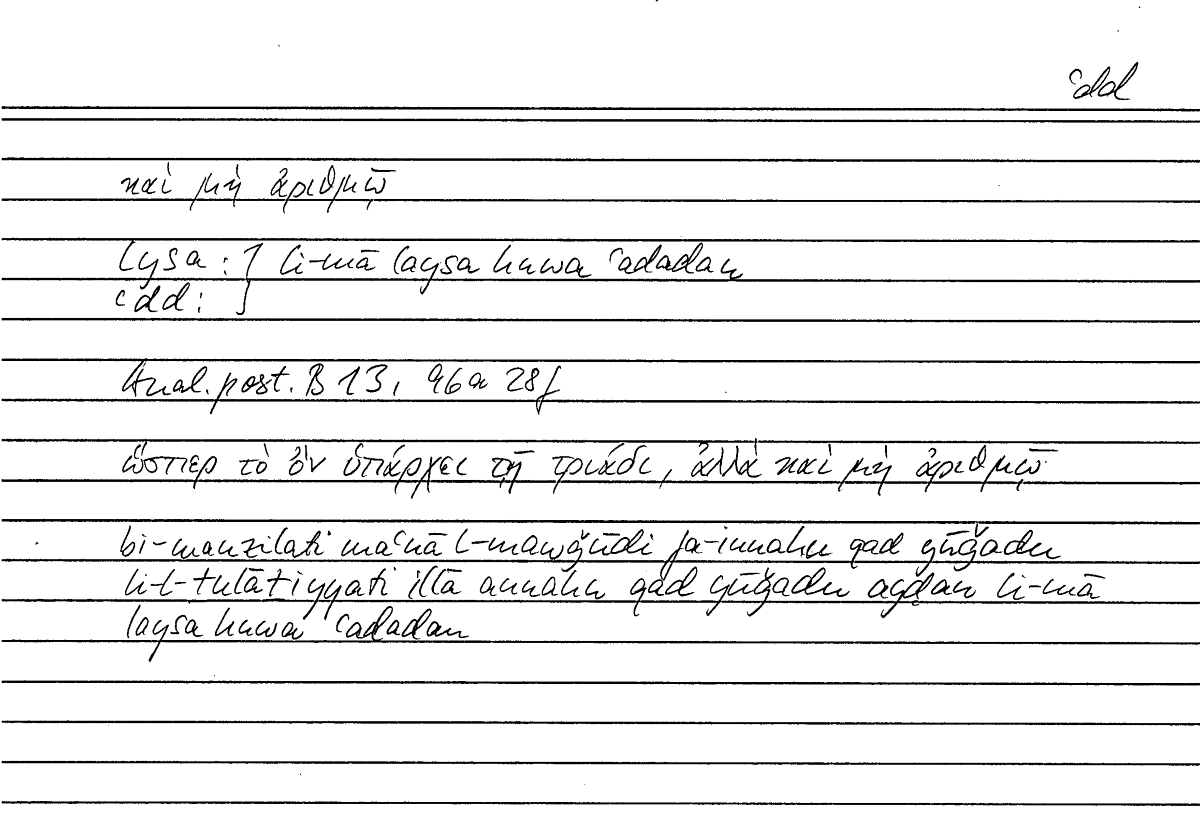 ʿdd
καὶ μὴ ἀριθμῷ
lysa : } li-mā laysa huwa ʿadadan
ʿdd : }
Anal. post. B 13, 96a 28f
ὥσπερ τὸ ὂν ὑπάρχει τῇ τριάδι, ἀλλὰ καὶ μὴ ἀριθμῷ
bi-manzilati maʿnā l-mawǧūdi fa-innahu qad yūǧadu
li-l-ṯulāṯiyyati illā annahu qad yūǧadu ayḍan li-mā
laysa huwa ʿadadan